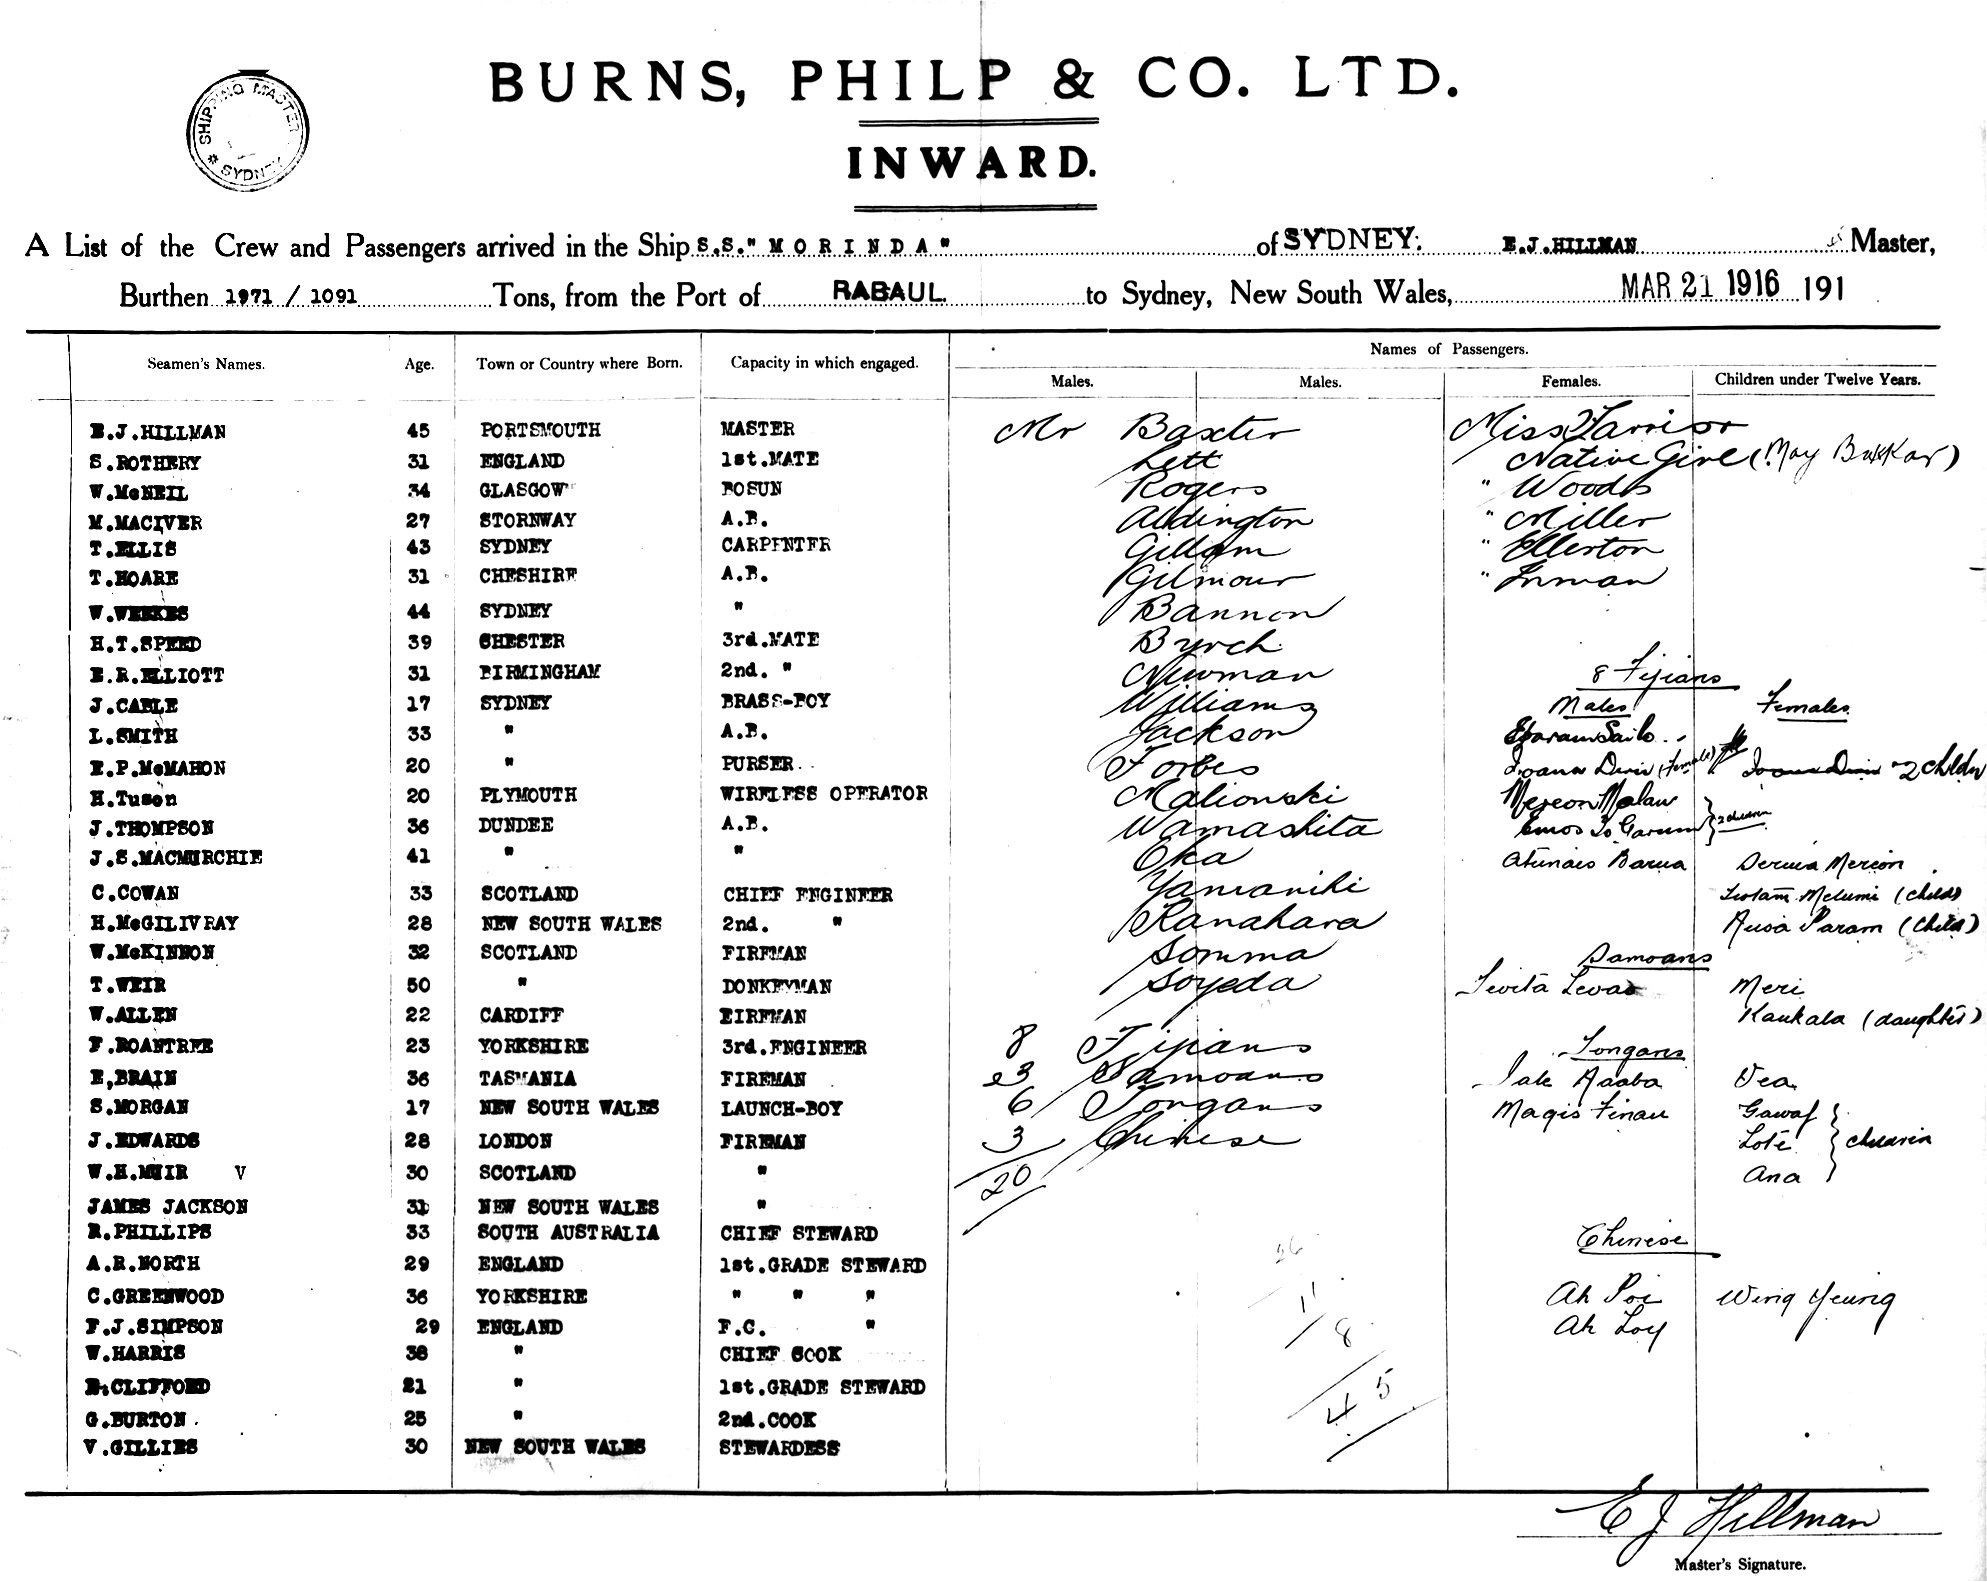 BURNS, PHILP & CO. LTD.
SHIPPING MASTER
* SYDNEY
INWARD.
A List of the Crew and Passengers arrived in the Ship S.S." M O R I N D A " of SYDNEY. E.J.HILLMAN Master,
Burthen 1971 / 1091 Tons, from the Port of RABAUL to Sydney, New South Wales, MAR 21 1916 191
Seamen's Names. Age. Town or Country where Born. Capacity in which engaged. Names of Passengers.
Males. Males. Females. Children under Twelve Years.
E.J.HILLMAN 45 PORTSMOUTH MASTER Mr Baxter Miss Harrison
S.ROTHERY 31 ENGLAND 1st.MATE Lett Native Girl (May Bukkar)
W.McNEIL 34 GLASGOW BOSUN Rogers " Woods
M.MACIVER 27 STORNWAY A.B. Aldington " Miller
T.ELLIS 43 SYDNEY CARPENTER Gillam " Ellerton
T.HOARE 31 CHESHIRE A.B. Gilmour " Inman
W.WEEKES 44 SYDNEY " Bannon
H.T.SPEED 39 CHESTER 3rd.MATE Byrch
E.R.ELLIOTT 31 BIRMINGHAM 2nd. " Newman 8 Fijians
J.CABLE 17 SYDNEY BRASS-BOY Williams Males Females
L.SMITH 33 " A.B. Jackson
E.P.McMAHON 20 " PURSER Forbes (Female) 2 Childn
H.Tuson 20 PLYMOUTH WIRELESS OPERATOR Maliowski
J.THOMPSON 36 DUNDEE A.B. Wamashita
J.S.MACMURCHIE 41 " " Oka Atunais Barua
C.COWAN 33 SCOTLAND CHIEF ENGINEER Yamaniki (child)
H.McGILIVRAY 28 NEW SOUTH WALES 2nd. " Kanahara Param (child)
W.McKINNON 32 SCOTLAND FIREMAN Somma Samoans
T.WEIR 50 " DONKEYMAN Soyeda Meri
W.ALLEN 22 CARDIFF FIREMAN Kaukala (daughter)
F.ROANTREE 23 YORKSHIRE 3rd.ENGINEER 8 Fijians Tongans
E,BRAIN 36 TASMANIA FIREMAN 3 Samoans Vea
S.MORGAN 17 NEW SOUTH WALES LAUNCH-BOY 6 Tongans Magis Finau
J.EDWARDS 28 LONDON FIREMAN 3 Chinese Lote children
W.H.MUIR V 30 SCOTLAND " 20 Ana
JAMES JACKSON 31 NEW SOUTH WALES "
R.PHILLIPS 33 SOUTH AUSTRALIA CHIEF STEWARD Chinese
A.R.NORTH 29 ENGLAND 1st.GRADE STEWARD 26
C.GREENWOOD 36 YORKSHIRE " " " 11 Ah Poi Wing Yeung
F.J.SIMPSON 29 ENGLAND F.C. " 8 Ah Loy
W.HARRIS 38 " CHIEF COOK
E.CLIFFORD 21 " 1st.GRADE STEWARD 45
G.BURTON 25 " 2nd.COOK
V.GILLIES 30 NEW SOUTH WALES STEWARDESS
E J Hillman
Master's Signature.